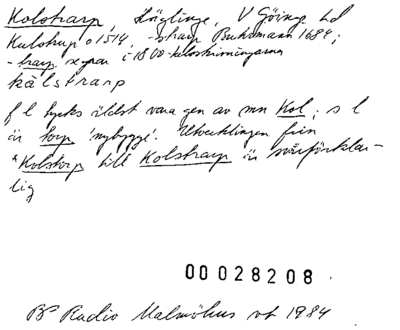 Kolstrarp, Häglinge, V Göinge hd
Kulstrup o 1514, -strarp Buhrmann 1684;
-trarp egran i 1800-talsskrivningarna
kålstrarp
f l tycks äldst vara gen av mn Kol; s l
är torp 'nybygge'. Utvecklingen från
*Kolstorp till Kolstrarp är svårförklar-
lig
00028208
BP Radio Malmöhus vt 1984